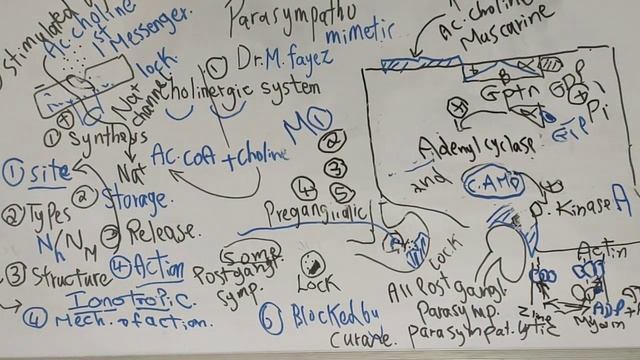 stimulated by
Ac choline
1st Messenger.
lock
Na+
channel
① Synthesis
Na+
Parasympatho
mimetic
① Dr. M. fayez
Cholinergic system
Ac.CoA + Choline
M ①
②
③
④ ⑤
① site
② Types
Nn/NM
③ Structure
Ionotropic
④ Mech. of action.
② Storage.
③ Release.
④ Action
Preganglionic
Some
Postgangl.
Symp.
Lock
⑥ Blocked by
Curare.
Lock
All Postgangl.
Parasymp.
Parasympat.lytic
Ac.choline
Muscarine
GPtn
GDP
Pi
GTP
Adenylcyclase.
2nd
C.AMP
P. Kinase A
Actin
Myosin
ADP